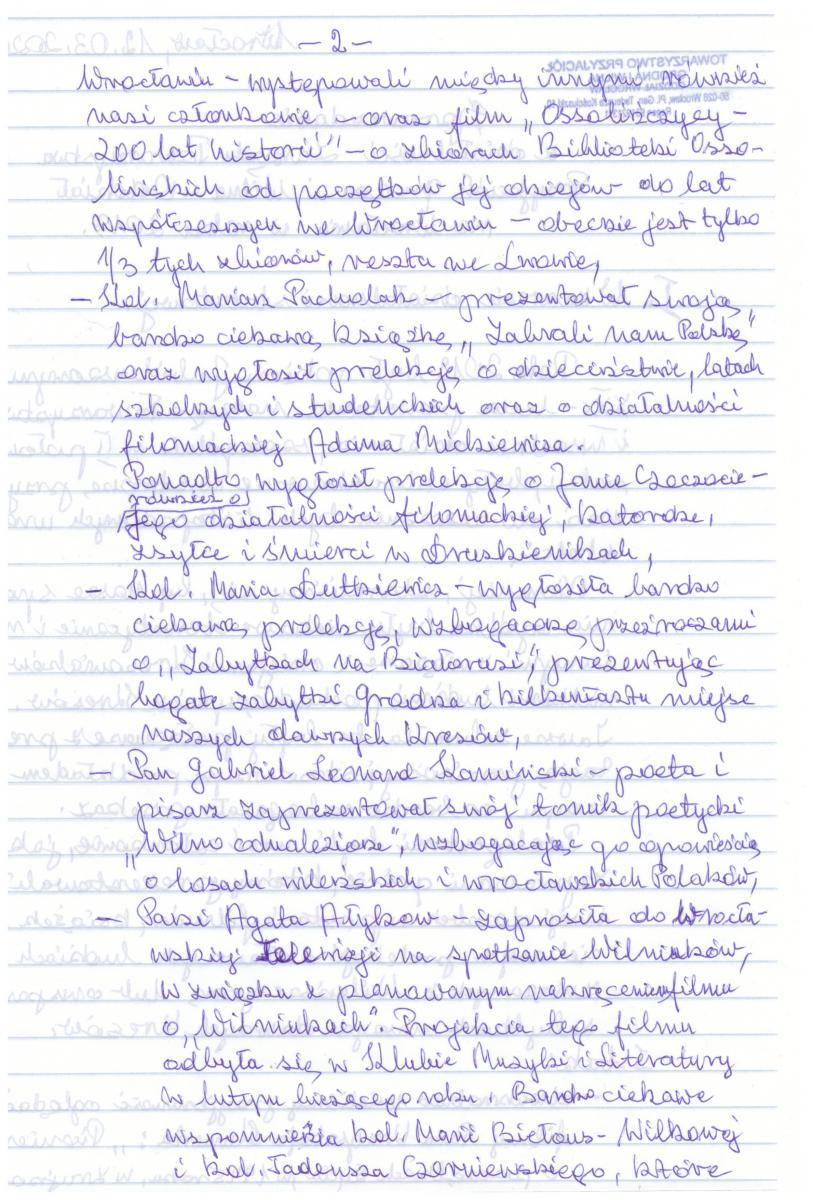 - 2 -
Wrocławiu - występowali między innymi również
nasi członkowie - oraz film „Ossolińczycy -
200 lat historii" - o zbiorach Biblioteki Osso-
lińskich od początków jej dziejów do lat
współczesnych we Wrocławiu - obecnie jest tylko
1/3 tych zbiorów, reszta we Lwowie,
- Kol. Marian Pacholak - prezentował swoją
bardzo ciekawą książkę „Zabrali nam Polskę"
oraz wygłosił prelekcję o dzieciństwie, latach
szkolnych i studenckich oraz o działalności
filomackiej Adama Mickiewicza.
Ponadto wygłosił prelekcję o Janie Czeczocie -
również o
jego działalności filomackiej, katordze,
zsyłce i śmierci w Druskienikach,
- Kol. Maria Dutkiewicz - wygłosiła bardzo
ciekawą prelekcję, wzbogaconą przeźroczami
o „Zabytkach na Białorusi", prezentując
bogate zabytki Grodna i kilkunastu miejsc
naszych dawnych Kresów,
- Pan Gabriel Leonard Kamiński - poeta i
pisarz zaprezentował swój tomik poetycki
„Wilno odnalezione", wzbogacając go opowieścią
o losach wileńskich i wrocławskich Polaków,
- Pani Agata Ałykow - zaprosiła do Wrocła-
wskiej Telewizji na spotkanie Wilniuków,
w związku z planowanym nakręceniem filmu
o „Wilniukach". Projekcja tego filmu
odbyła się w Klubie Muzyki i Literatury
w lutym bieżącego roku. Bardzo ciekawe
wspomnienia kol. Marii Biełous - Wilkowej
i kol. Tadeusza Czerniewskiego, które